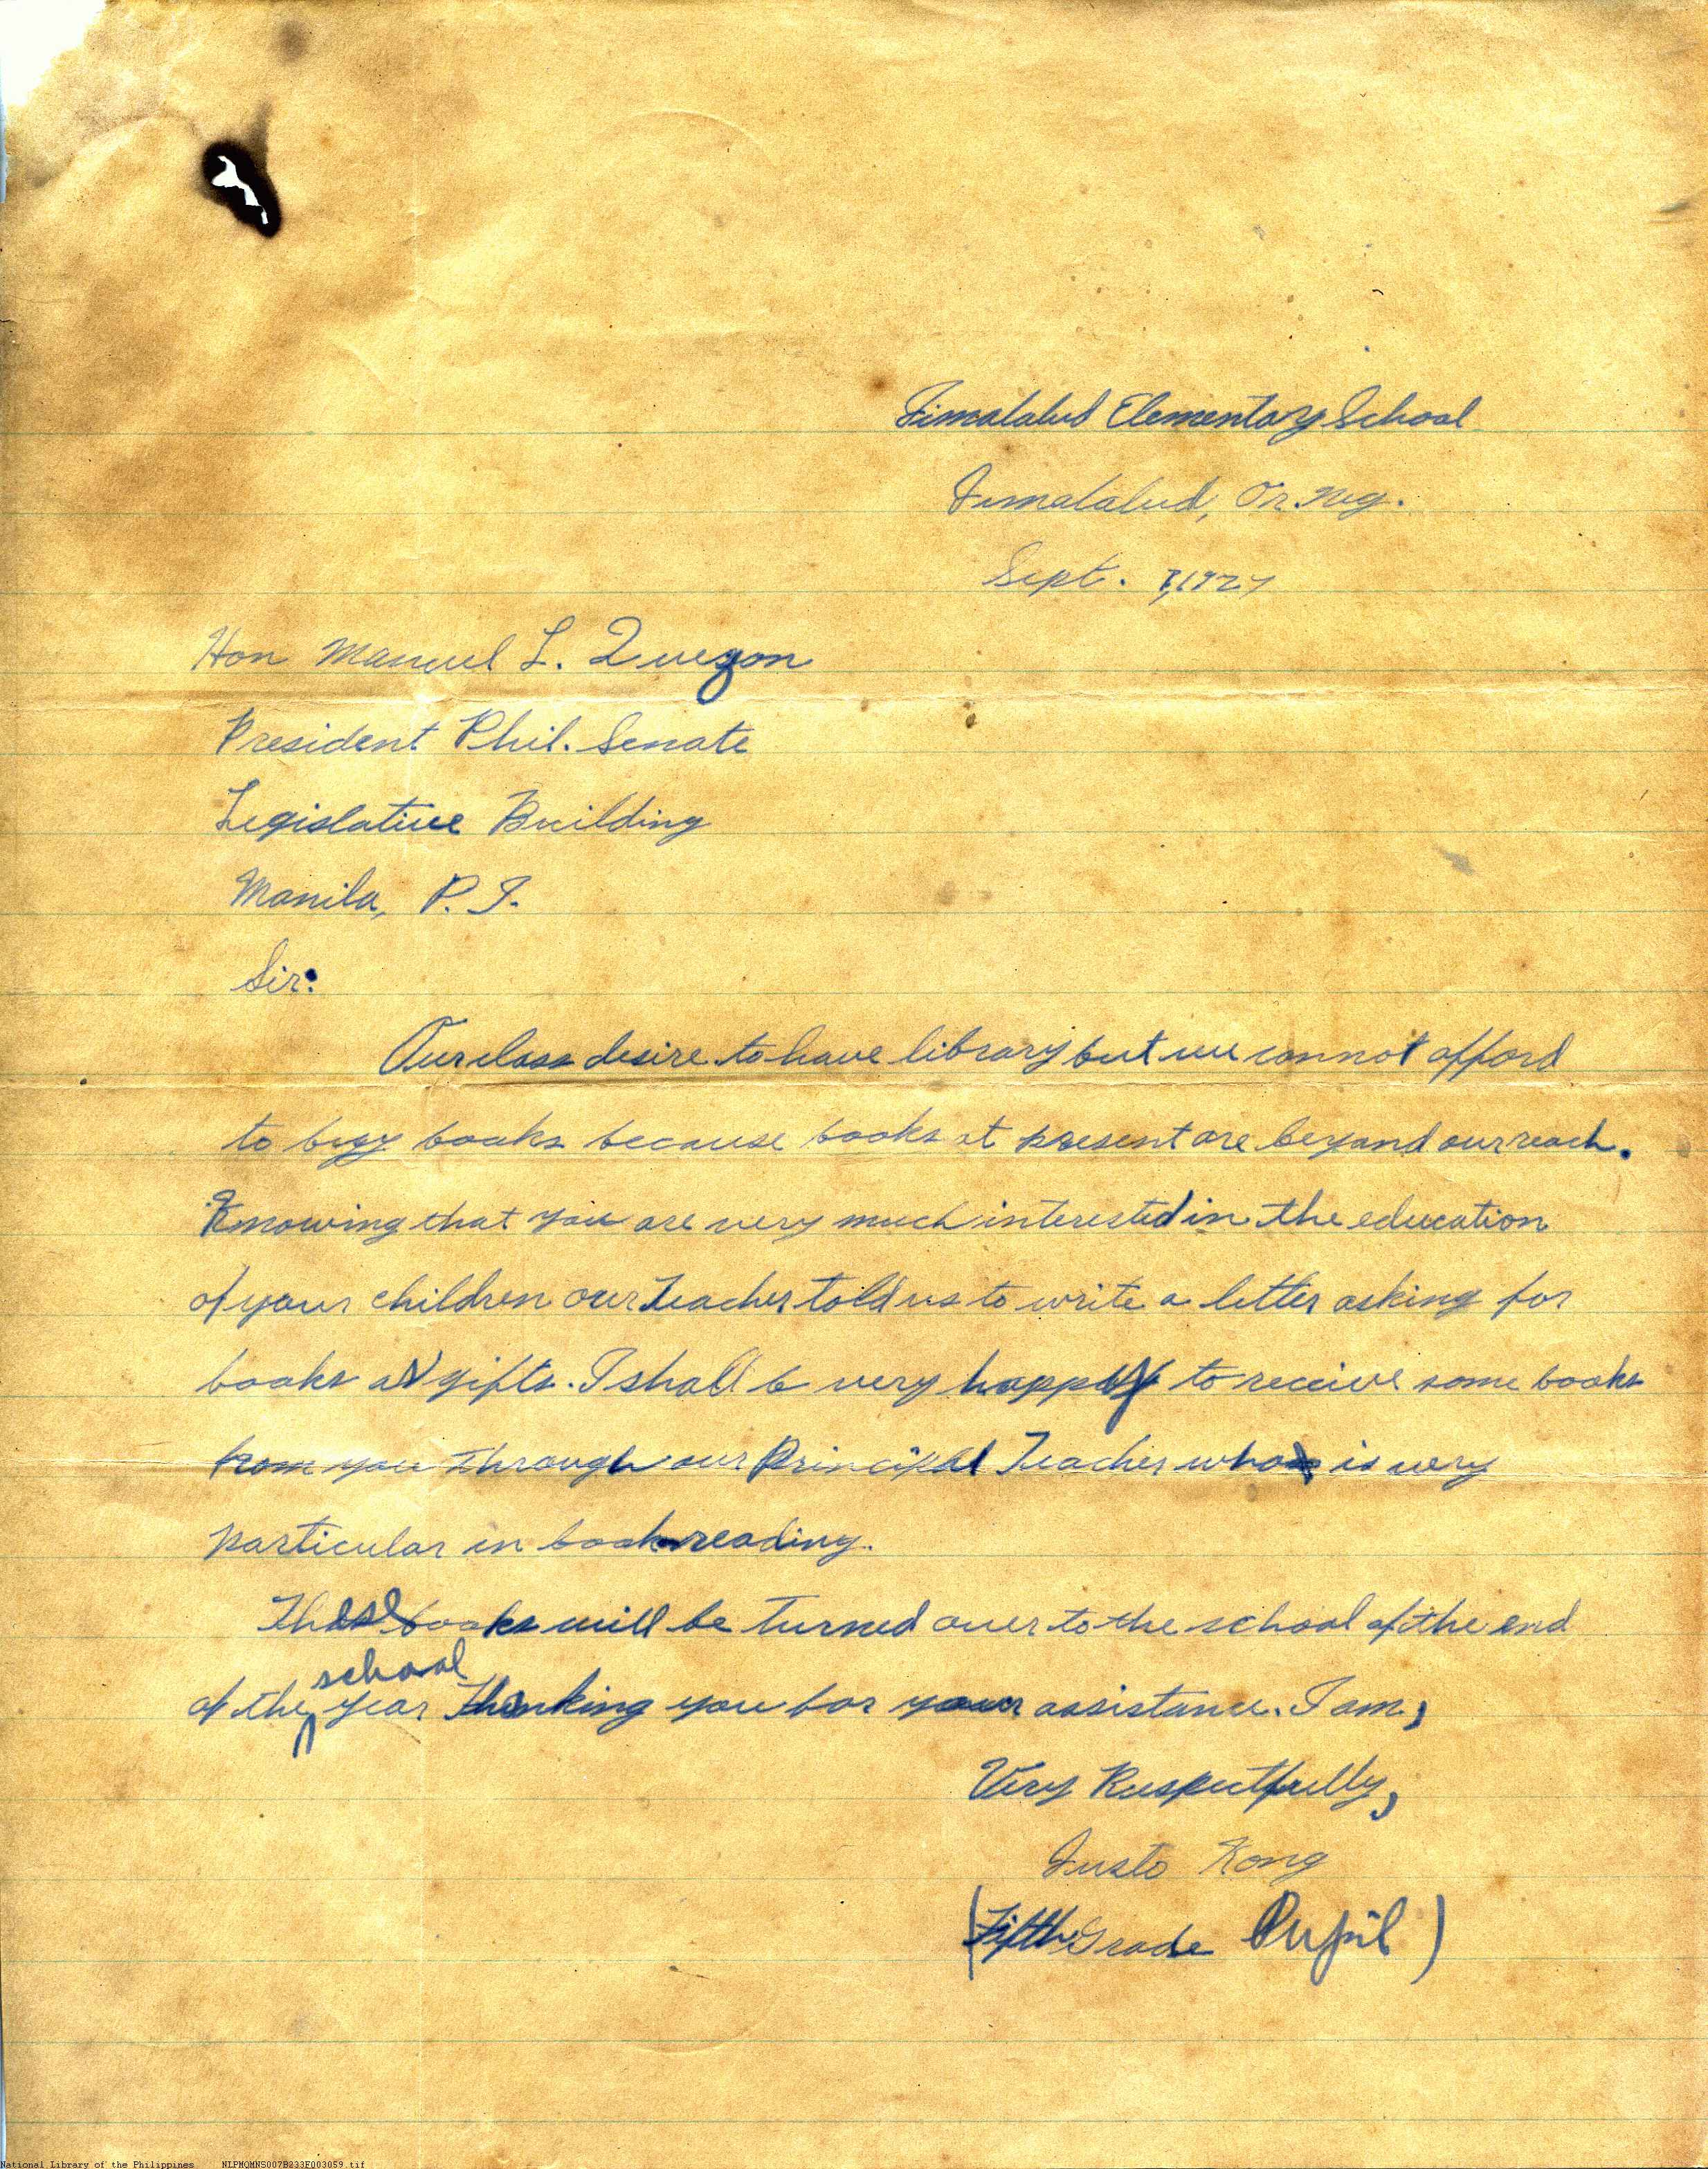 Jimalalud Elementary School
Jimalalud, Or. Neg.
Sept. 7, 1927
Hon Manuel L. Quezon
President Phil. Senate
Legislative Building
Manila, P. I.
Sir:
Our class desire to have library but we cannot afford
to buy books because books at present are beyond our reach.
Knowing that you are very much interested in the education
of your children our Teacher told us to write a letter asking for
books as gifts. I shall b very happy to receive some books
from you through our Principal Teacher who is very
particular in book reading.
These books will be turned over to the school of the end
school
of the year Thanking you for your assistance. I am,
Very Respectfully,
Justo Kong
(Fifth Grade Pupil)
National Library of the Philippines NLPMQMNS007B233F003059.tif